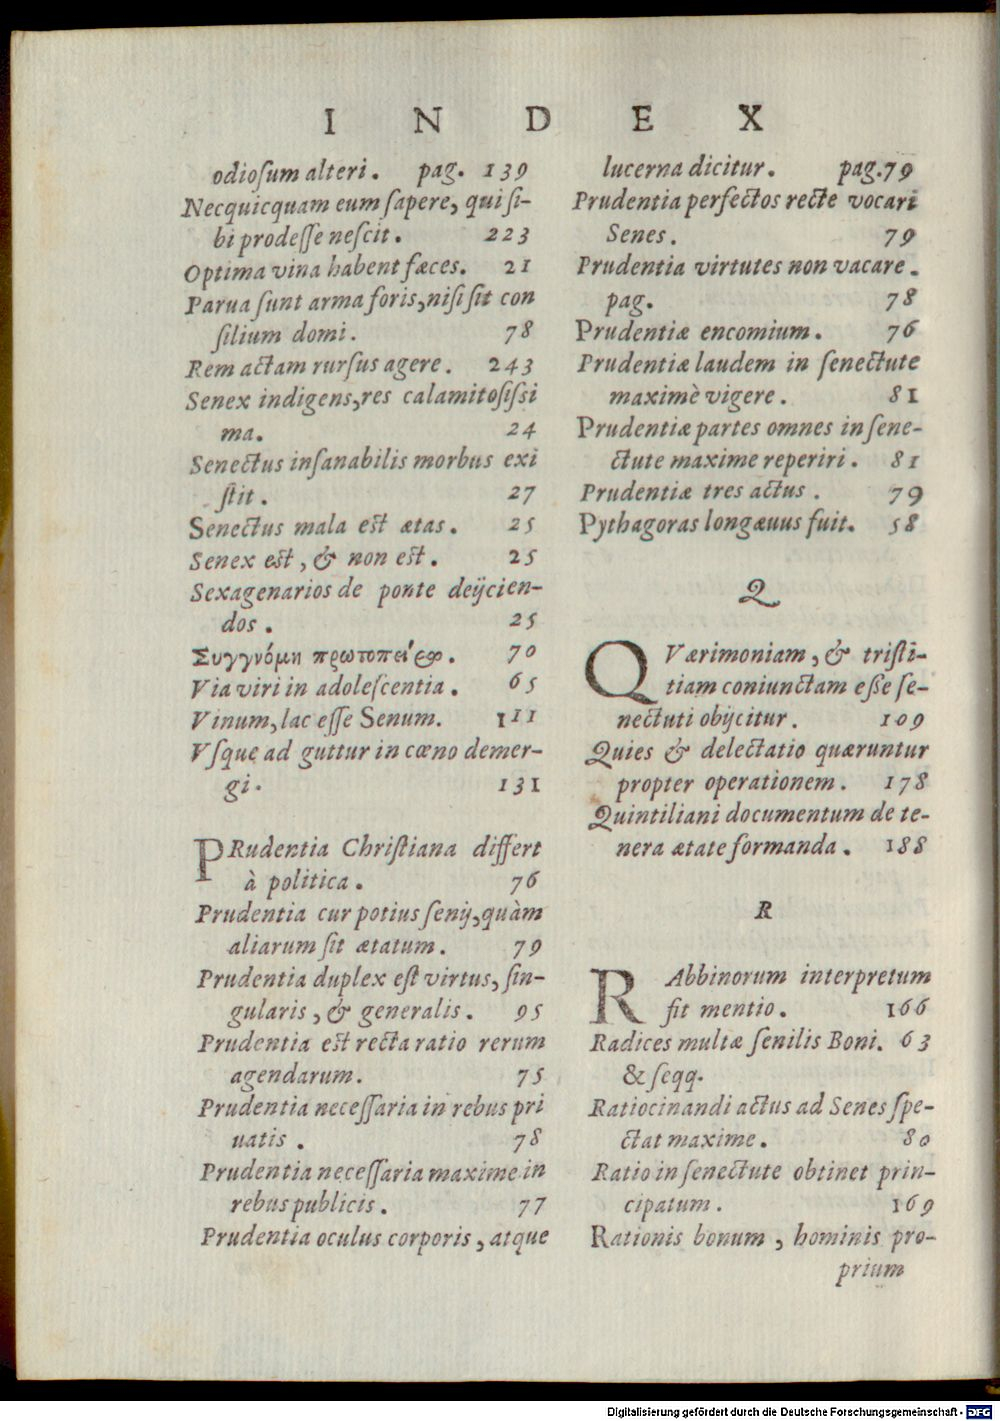 INDEX
odioſum alteri. pag. 139
Necquicquam eum ſapere, qui ſi-
bi prodeſſe neſcit. 223
Optima vina habent fæces. 21
Parua ſunt arma foris, niſi ſit con
ſilium domi. 78
Rem actam rurſus agere. 243
Senex indigens, res calamitoſiſsi
ma. 24
Senectus inſanabilis morbus exi
ſtit. 27
Senectus mala est ætas. 25
Senex est, & non est. 25
Sexagenarios de ponte deijcien-
dos. 25
70
Via viri in adoleſcentia. 65
Vinum, lac eſſe Senum. 111
Vſque ad guttur in cœno demer-
gi. 131
PRudentia Chriſtiana differt
à politica. 76
Prudentia cur potius ſenij, quàm
aliarum ſit ætatum. 79
Prudentia duplex eſt virtus, ſin-
gularis, & generalis. 95
Prudentia est recta ratio rerum
agendarum. 75
Prudentia neceſſaria in rebus pri
uatis. 78
Prudentia neceſſaria maxime in
rebus publicis. 77
Prudentia oculus corporis, atque
lucerna dicitur. pag. 79
Prudentia perfectos recte vocari
Senes. 79
Prudentia virtutes non vacare.
pag. 78
Prudentiæ encomium. 76
Prudentiæ laudem in ſenectute
maximè vigere. 81
Prudentiæ partes omnes in ſene-
ctute maxime reperiri. 81
Prudentiæ tres actus. 79
Pythagoras longæuus fuit. 58
Q
QVærimoniam, & triſti-
tiam coniunctam eße ſe-
nectuti obijcitur. 109
Quies & delectatio quæruntur
propter operationem. 178
Quintiliani documentum de te-
nera ætate formanda. 188
R
RAbbinorum interpretum
fit mentio. 166
Radices multæ ſenilis Boni. 63
& ſeqq.
Ratiocinandi actus ad Senes ſpe-
ctat maxime. 80
Ratio in ſenectute obtinet prin-
cipatum. 169
Rationis bonum, hominis pro-
prium
Digitalisierung gefördert durch die Deutsche Forschungsgemeinschaft - DFG